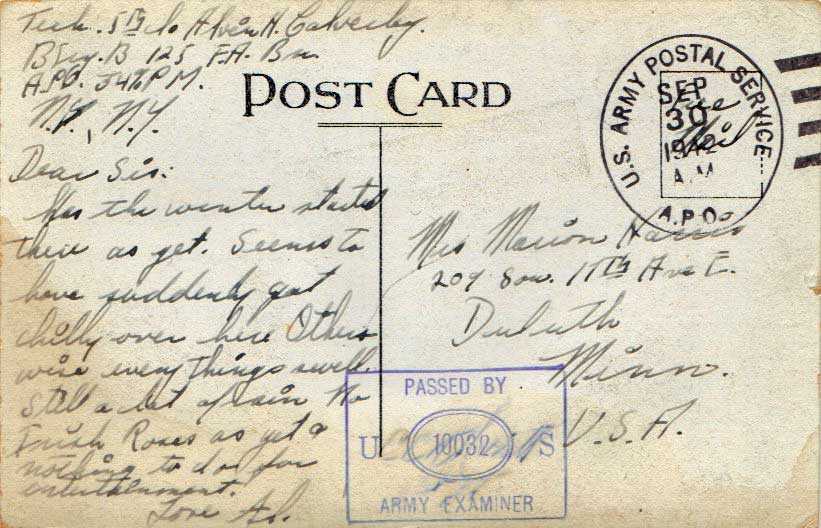 Tech. 5th Alvin H. Calverley.
Btry. B 125 F.A. Bn.
A.P.O. 34 % P.M.
N.Y., N.Y.
POST CARD
U.S. ARMY POSTAL SERVICE
SEP
30
1942
A.M.
A.P.O.
Free
Mail
Dear Sis:
Has the winter started
there as yet. Seems to
have suddenly got
chilly over here Other
wise everythings swell.
Still a lot of rain No
Irish Roses as yet &
nothing to do for
entertainment.
Love Al.
Mrs Marion Harris
209 Sou. 11th Ave E.
Duluth
Minn.
U.S.A.
PASSED BY
U 10032 S
ARMY EXAMINER